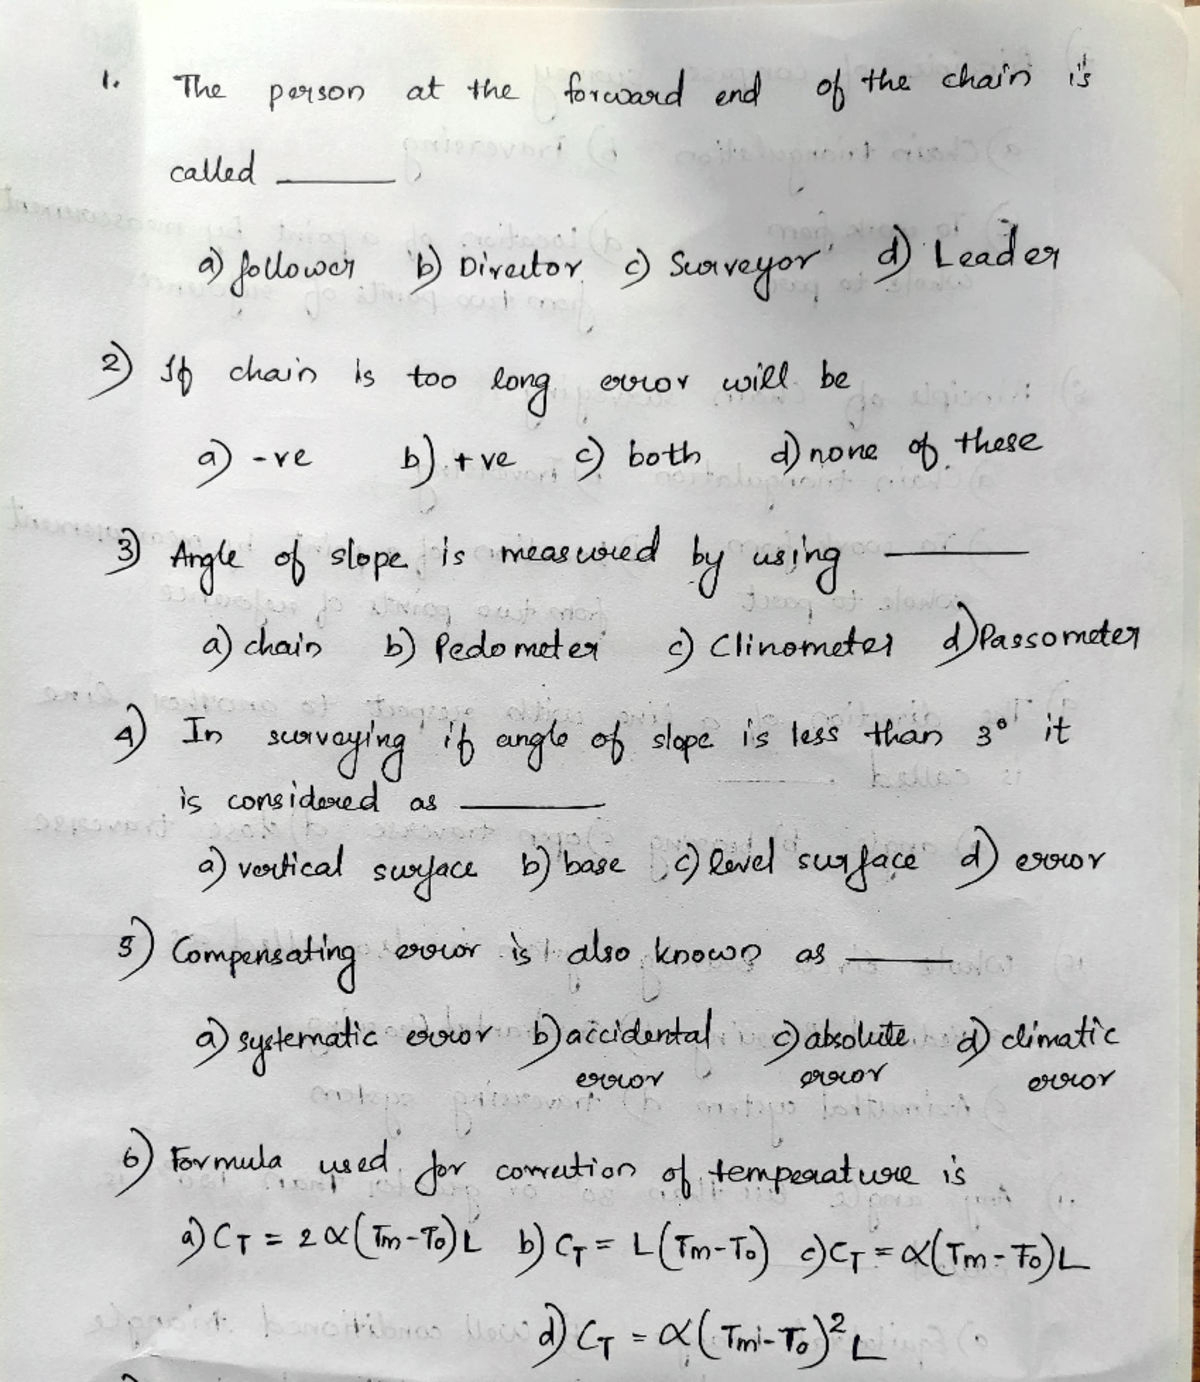 1. The person at the forward end of the chain is
called ______
a) follower b) Director c) Surveyor d) Leader
2) If chain is too long error will be
a) -ve b) +ve c) both d) none of these
3) Angle of slope is measured by using ______
a) chain b) Pedometer c) Clinometer d) Passometer
4) In surveying if angle of slope is less than 3° it
is considered as ______
a) vertical surface b) base c) level surface d) error
5) Compensating error is also known as ______
a) systematic error b) accidental error c) absolute error d) climatic error
6) Formula used for correction of temperature is
a) C_T = 2α(Tm-To)L b) C_T = L(Tm-To) c) C_T = α(Tm-To)L
d) C_T = α(Tm-To)²L